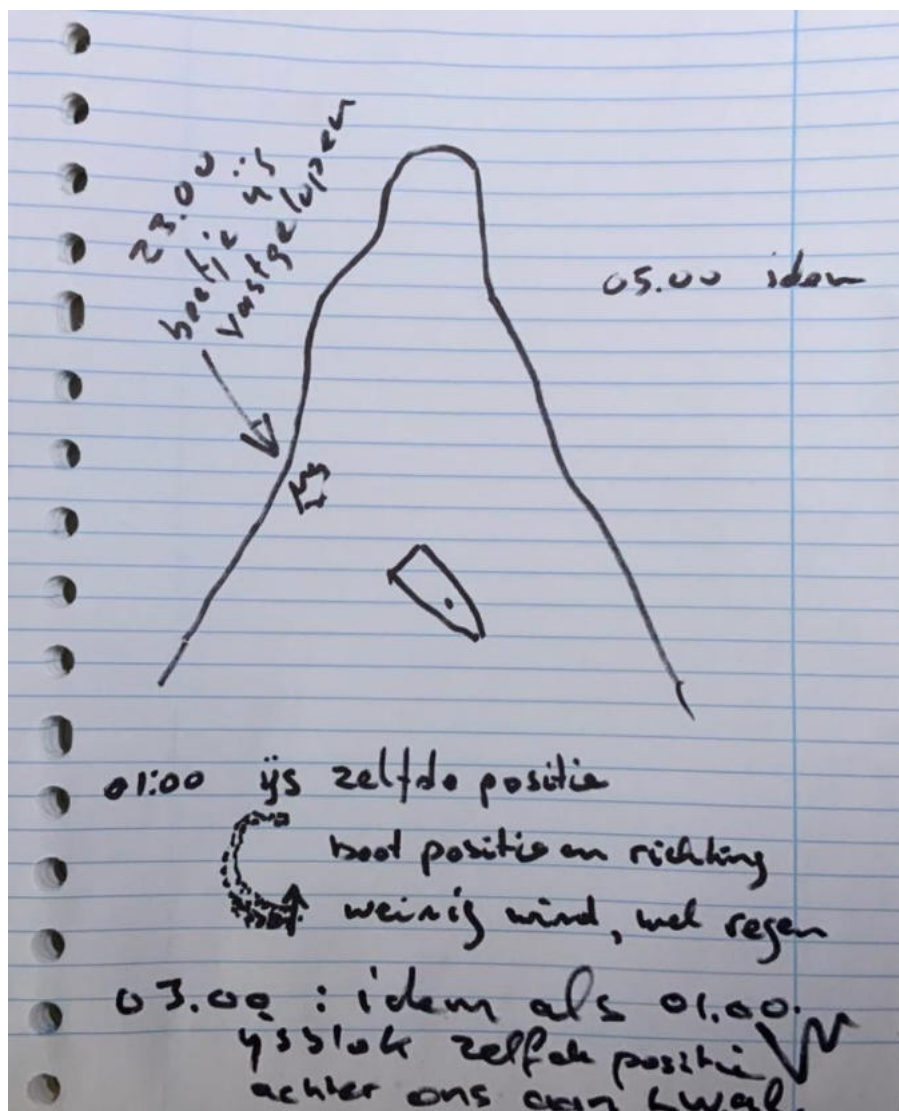 23.00
beetje ijs
vastgelopen
05.00 idem
01:00 ijs zelfde positie
boot positie en richting
weinig wind, wel regen
03.00 : idem als 01.00.
ijsblok zelfde positie
achter ons aan wal.